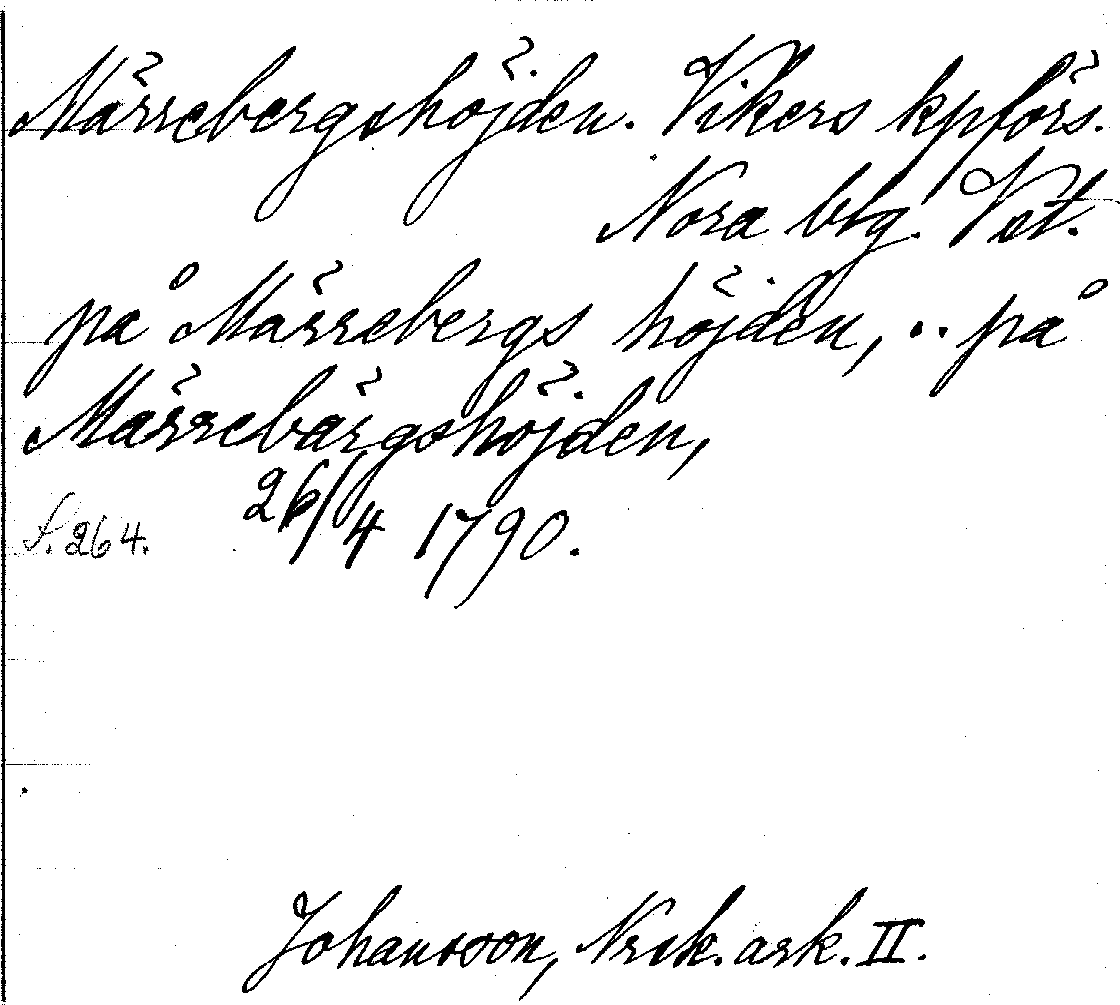 Märrebergshöjden. Vikers kpförs.
Nora btg. Vet.
på Märrebergs höjden, .. på
Märrebärgshöjden,
S. 264. 26/4 1790.
Johansson, Nrik. ark. II.